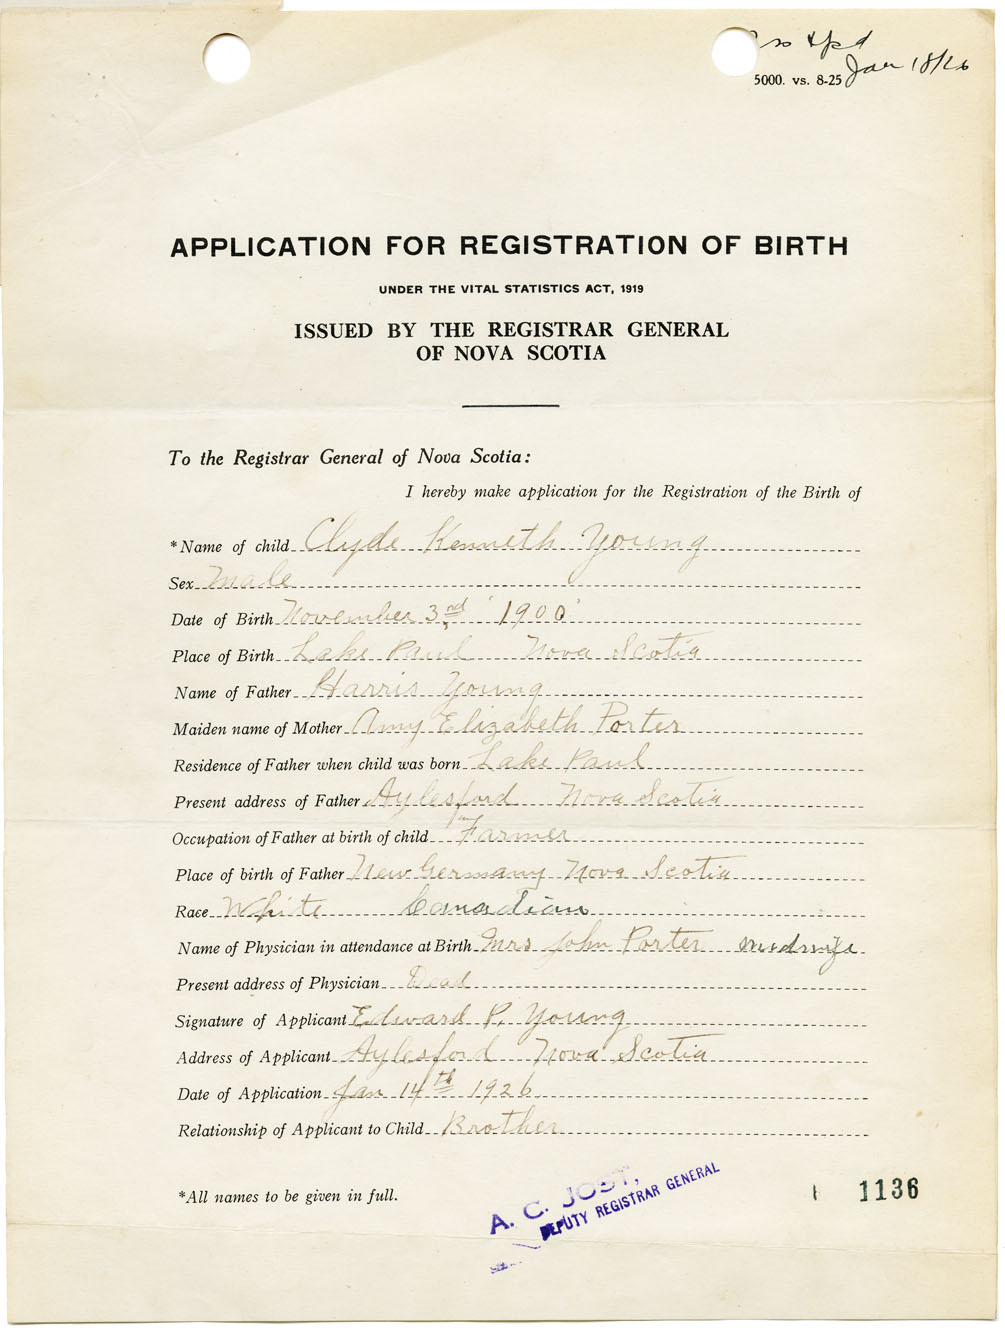 Jan 18/26
5000. vs. 8-25
APPLICATION FOR REGISTRATION OF BIRTH
UNDER THE VITAL STATISTICS ACT, 1919
ISSUED BY THE REGISTRAR GENERAL
OF NOVA SCOTIA
To the Registrar General of Nova Scotia:
I hereby make application for the Registration of the Birth of
*Name of child Clyde Kenneth Young
Sex Male
Date of Birth November 3rd 1900
Place of Birth Lake Paul Nova Scotia
Name of Father Harris Young
Maiden name of Mother Amy Elizabeth Porter
Residence of Father when child was born Lake Paul
Present address of Father Aylesford Nova Scotia
Occupation of Father at birth of child Farmer
Place of birth of Father New Germany Nova Scotia
Race White Canadian
Name of Physician in attendance at Birth Mrs John Porter midwife
Present address of Physician Dead
Signature of Applicant Edward P. Young
Address of Applicant Aylesford Nova Scotia
Date of Application Jan 14th 1926
Relationship of Applicant to Child Brother
*All names to be given in full.
A. C. JOST,
DEPUTY REGISTRAR GENERAL
1136